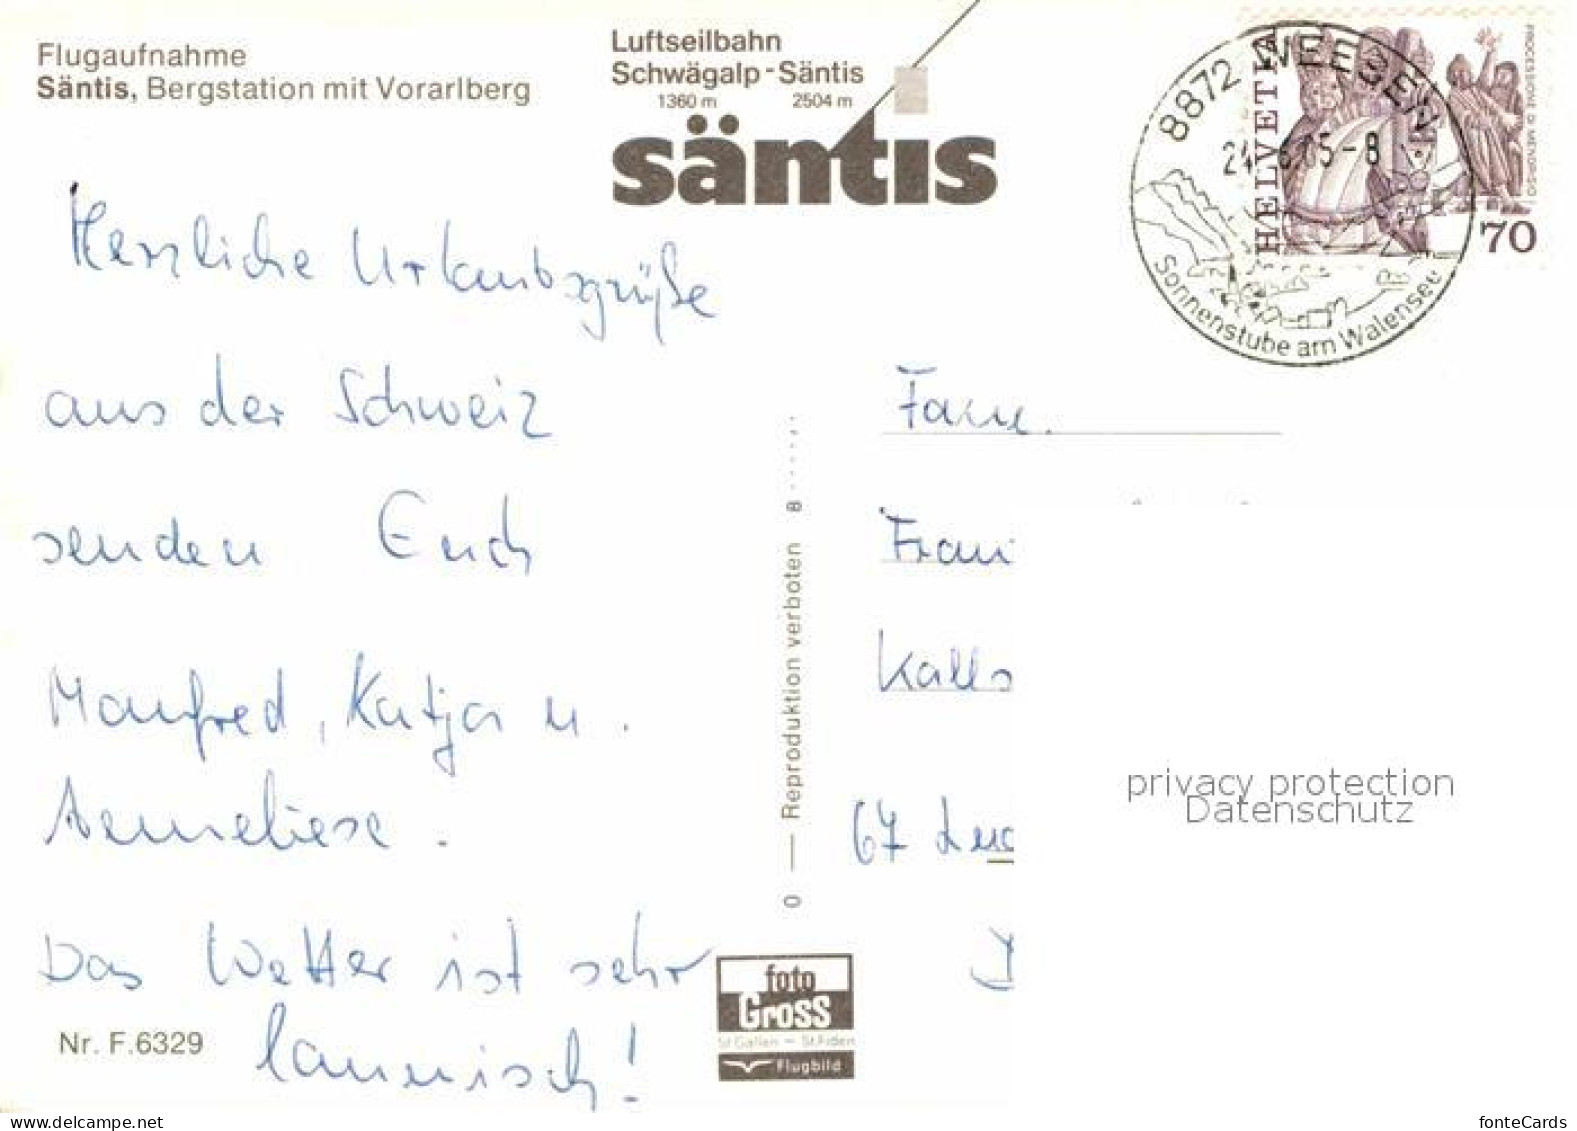 Flugaufnahme
Säntis, Bergstation mit Vorarlberg
Luftseilbahn
Schwägalp - Säntis
1360 m 2504 m
säntis
8872 WEESEN
-8
Sonnenstube am Walensee
HELVETIA
PROCESSIONE DI MENDRISIO
70
Herzliche Urlaubsgrüße
aus der Schweiz
senden Euch
Manfred, Katja u.
Anneliese.
Das Wetter ist sehr
launisch!
Nr. F.6329
0 — Reproduktion verboten 8
foto
Gross
St Gallen — St.Fiden
Flugbild
Fam.
Kalls
67
privacy protection
Datenschutz
www.delcampe.net
fonteCards